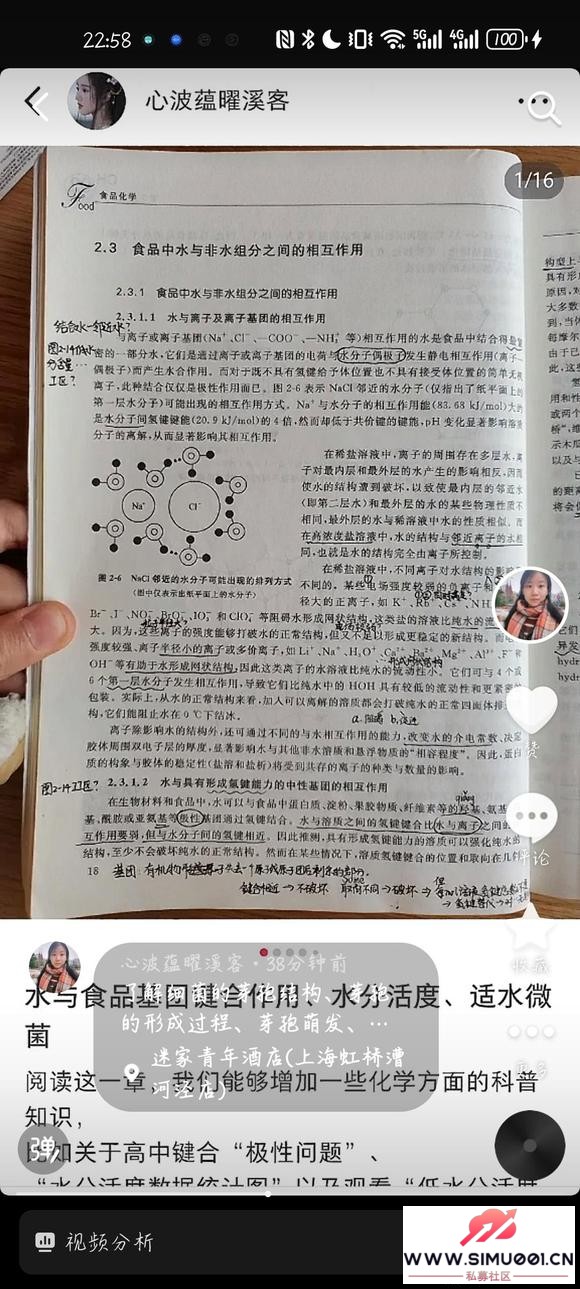 22:58
5G
4G
100
心波蕴曜溪客
1/16
Food
食品化学
2.3 食品中水与非水组分之间的相互作用
2.3.1 食品中水与非水组分之间的相互作用
2.3.1.1 水与离子及离子基团的相互作用
结合水-邻近水?
与离子或离子基团(Na⁺、Cl⁻、—COO⁻、—NH₃⁺ 等)相互作用的水是食品中结合得最紧
密的一部分水,它们是通过离子或离子基团的电荷与水分子偶极子发生静电相互作用(离子—
偶极子)而产生水合作用。而对于既不具有氢键给予体位置也不具有接受体位置的简单无机
离子,此种结合仅仅是极性作用而已。图 2-6 表示 NaCl 邻近的水分子(仅指出了纸平面上的
第一层水分子)可能出现的相互作用方式。Na⁺ 与水分子的相互作用能(83.68 kJ/mol)大约
是水分子间氢键键能(20.9 kJ/mol)的 4 倍,然而却低于共价键的键能,pH 变化显著影响溶质
分子的离解,从而显著影响其相互作用。
Na⁺
Cl⁻
图 2-6 NaCl 邻近的水分子可能出现的排列方式
(图中仅表示出纸平面上的水分子)
在稀盐溶液中,离子的周围存在多层水,离
子对最内层和最外层的水产生的影响相反,因而
使水的结构遭到破坏,以致使最内层的邻近水
(即第二层水)和最外层的水的某些物理性质不
相同,最外层的水与稀溶液中水的性质相似。而
在高浓度盐溶液中,水的结构与邻近离子的水相
同,也就是水的结构完全由离子所控制。
在稀盐溶液中,不同离子对水结构的影响
不同的。某些电场强度较弱的负离子和
径大的正离子,如 K⁺、Rb⁺、Cs⁺、NH
Br⁻、I⁻、NO₃⁻、BrO₃⁻、IO₃⁻ 和 ClO₄⁻ 等阻碍水形成网状结构,这类盐的溶液比纯水的流
大。因为,这些离子的强度能够打破水的正常结构,但又不足以形成更稳定的新结构。而电
强度较强、离子半径小的离子或多价离子,如 Li⁺、Na⁺、H₃O⁺、Ca²⁺、Ba²⁺、Mg²⁺、Al³⁺、F⁻ 和
OH⁻ 等有助于水形成网状结构,因此这类离子的水溶液比纯水的流动性小。它们可与 4 个或
6 个第一层水分子发生相互作用,导致它们比纯水中的 HOH 具有较低的流动性和更紧密的
包装。实际上,从水的正常结构来看,加入可以离解的溶质都会打破纯水的正常四面体排
构,它们能阻止水在 0 ℃下结冰。
a.阻碍 b.促进
离子除影响水的结构外,还可通过不同的与水相互作用的能力,改变水的介电常数、决定
胶体周围双电子层的厚度,显著影响水与其他非水溶质和悬浮物质的“相容程度”。因此,蛋白
质的构象与胶体的稳定性(盐溶和盐析)将受到共存的离子的种类与数量的影响。
2.3.1.2 水与具有形成氢键能力的中性基团的相互作用
在生物材料和食品中,水可以与食品中蛋白质、淀粉、果胶物质、纤维素等的羟基、氨基
基、酰胺或亚氨基等极性基团通过氢键结合。水与溶质之间的氢键键合比水与离子之间的
互作用要弱,但与水分子间的氢键相近。因此推测,具有形成氢键能力的溶质可以强化纯水的
结构,至少不会破坏纯水的正常结构。然而在某些情况下,溶质氢键键合的位置和取向在几何
18
赞
评论
收藏
更多
心波蕴曜溪客·38分钟前
了解细菌的芽孢结构、芽孢
的形成过程、芽孢萌发、…
迷家青年酒店(上海虹桥漕
河泾店)
水与食品基团键合作用、水分活度、适水微
菌
阅读这一章,我们能够增加一些化学方面的科普
知识,
比如关于高中键合“极性问题”、
“水分活度数据统计图”以及观看“低水分活度
弹
视频分析
WWW.SIMU001.CN
私募社区